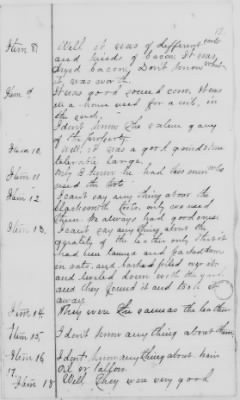 17
Item 8 Well it was of different cuts
and kinds of bacon. It was
dryed bacon, Don't know what
it was worth.
Item 9 It was good sound corn. It was
in a house used for a crib, in
the yard.
I don't know the value of any
of the property.
Item 10. Well, it was a good
tolerable large.
Item 11 My
used the
Item 12 I can't say any thing about the
Blacksmith tools, only we used
them. We always had good ones.
Item 13. I can't say any thing about the
quality of the leather only that it
had been
in vats, and
and leveled down with the yard.
and they found it and took it
away.
Item 14. They were the same as the leather
Item 15. I don't know any thing about them
Item 16 I don't know any thing about
17. oil or tallow.
Item 18 Well They was very good